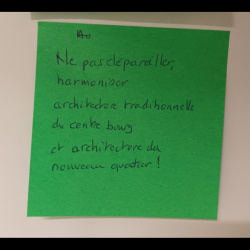 Ne pas dépareiller,
harmoniser
architecture traditionnelle
du centre-bourg
et architecture du
nouveau quartier !